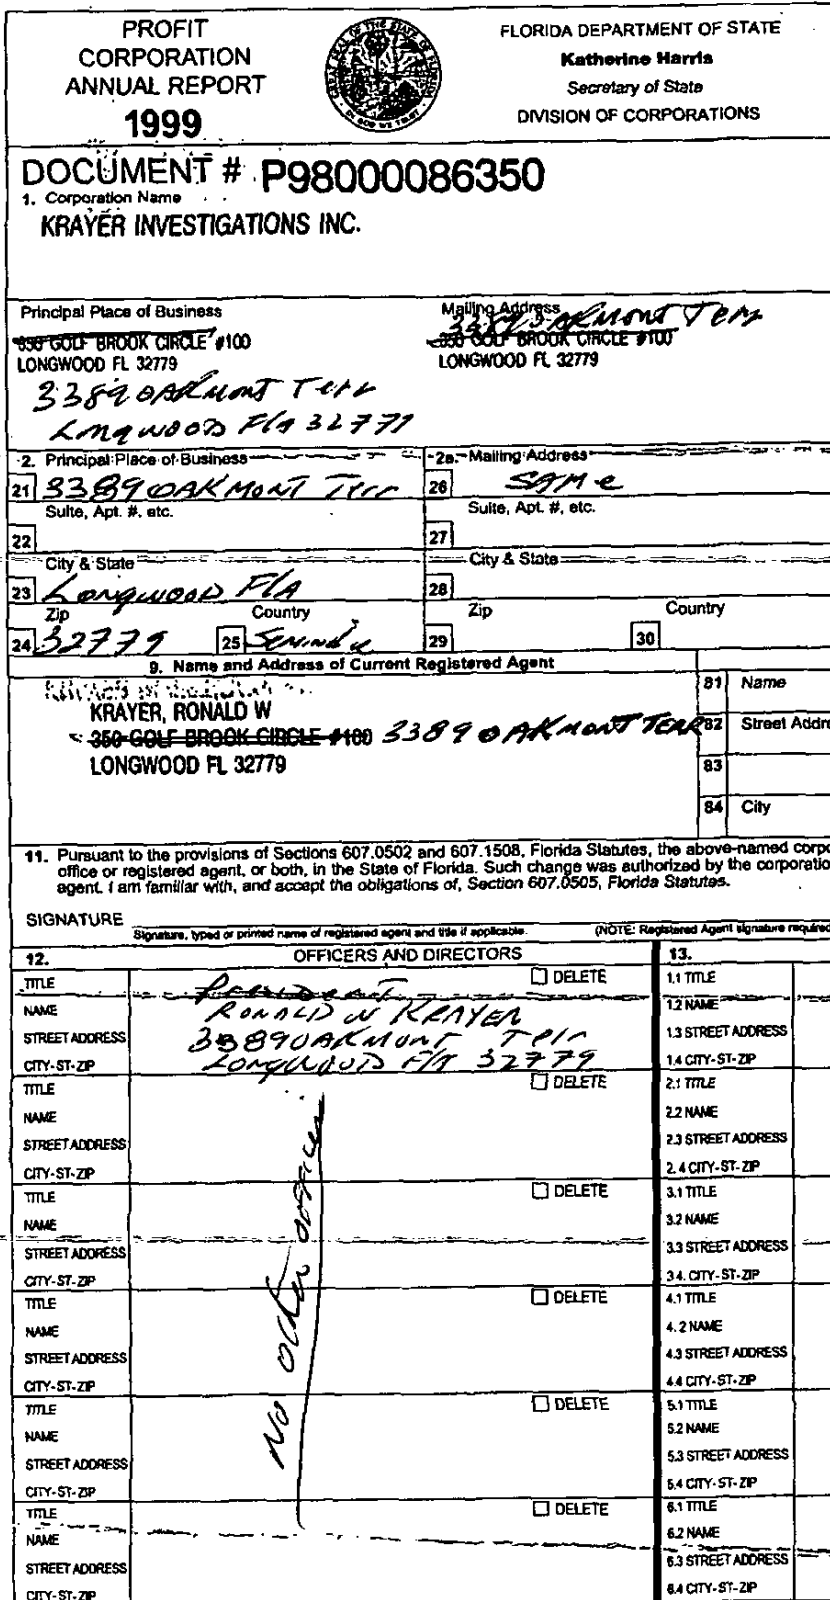 PROFIT
CORPORATION
ANNUAL REPORT
1999
GREAT SEAL OF THE STATE OF FLORIDA
IN GOD WE TRUST
FLORIDA DEPARTMENT OF STATE
Katherine Harris
Secretary of State
DIVISION OF CORPORATIONS
DOCUMENT # P98000086350
1. Corporation Name
KRAYER INVESTIGATIONS INC.
Principal Place of Business
350 GOLF BROOK CIRCLE #100
LONGWOOD FL 32779
3389 OAKMONT Terr
LongWOOD FlA 32779
Mailing Address
3389 OAKMONT Terr
350 GOLF BROOK CIRCLE #100
LONGWOOD FL 32779
2. Principal Place of Business
2a. Mailing Address
21 3389 OAKMONT Terr
26 SAMe
Suite, Apt. #, etc.
Suite, Apt. #, etc.
22
27
City & State
City & State
23 LongwooD FlA
28
Zip
Country
Zip
Country
24 32779
25 Seminole
29
30
9. Name and Address of Current Registered Agent
KRAYER, RONALD W
350 GOLF BROOK CIRCLE #100 3389 OAKMONT TERR
LONGWOOD FL 32779
81 Name
82 Street Addre
83
84 City
11. Pursuant to the provisions of Sections 607.0502 and 607.1508, Florida Statutes, the above-named corpo
office or registered agent, or both, in the State of Florida. Such change was authorized by the corporatio
agent. I am familiar with, and accept the obligations of, Section 607.0505, Florida Statutes.
SIGNATURE
Signature, typed or printed name of registered agent and title if applicable.
(NOTE: Registered Agent signature required
12.
OFFICERS AND DIRECTORS
13.
TITLE President DELETE
NAME RONALD W KRAYER
STREET ADDRESS 3389 OAKMONT Terr
CITY-ST-ZIP LONGWOOD FlA 32779
1.1 TITLE
1.2 NAME
1.3 STREET ADDRESS
1.4 CITY-ST-ZIP
TITLE DELETE
NAME
STREET ADDRESS
CITY-ST-ZIP
2.1 TITLE
2.2 NAME
2.3 STREET ADDRESS
2.4 CITY-ST-ZIP
No other officer
TITLE DELETE
NAME
STREET ADDRESS
CITY-ST-ZIP
3.1 TITLE
3.2 NAME
3.3 STREET ADDRESS
3.4. CITY-ST-ZIP
TITLE DELETE
NAME
STREET ADDRESS
CITY-ST-ZIP
4.1 TITLE
4.2 NAME
4.3 STREET ADDRESS
4.4 CITY-ST-ZIP
TITLE DELETE
NAME
STREET ADDRESS
CITY-ST-ZIP
5.1 TITLE
5.2 NAME
5.3 STREET ADDRESS
5.4 CITY-ST-ZIP
TITLE DELETE
NAME
STREET ADDRESS
CITY-ST-ZIP
6.1 TITLE
6.2 NAME
6.3 STREET ADDRESS
6.4 CITY-ST-ZIP